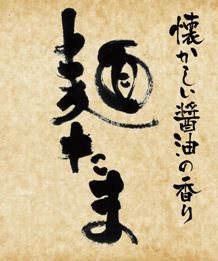 懐かしい醤油の香り
麺たま